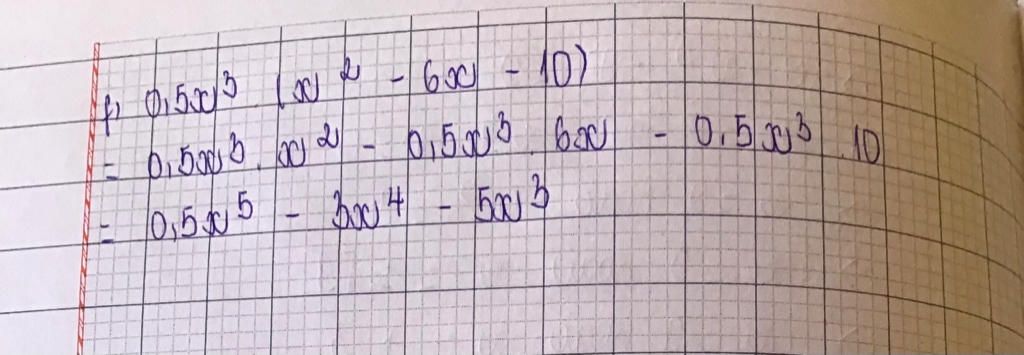 f, 0,5x³ (x² - 6x - 10)
= 0,5x³. x² - 0,5x³. 6x - 0,5x³. 10
= 0,5x⁵ - 3x⁴ - 5x³